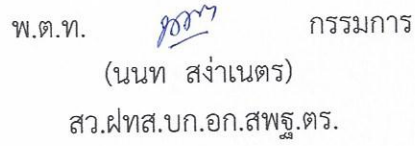 พ.ต.ท. กรรมการ
(นนท สง่าเนตร)
สว.ฝทส.บก.อก.สพฐ.ตร.